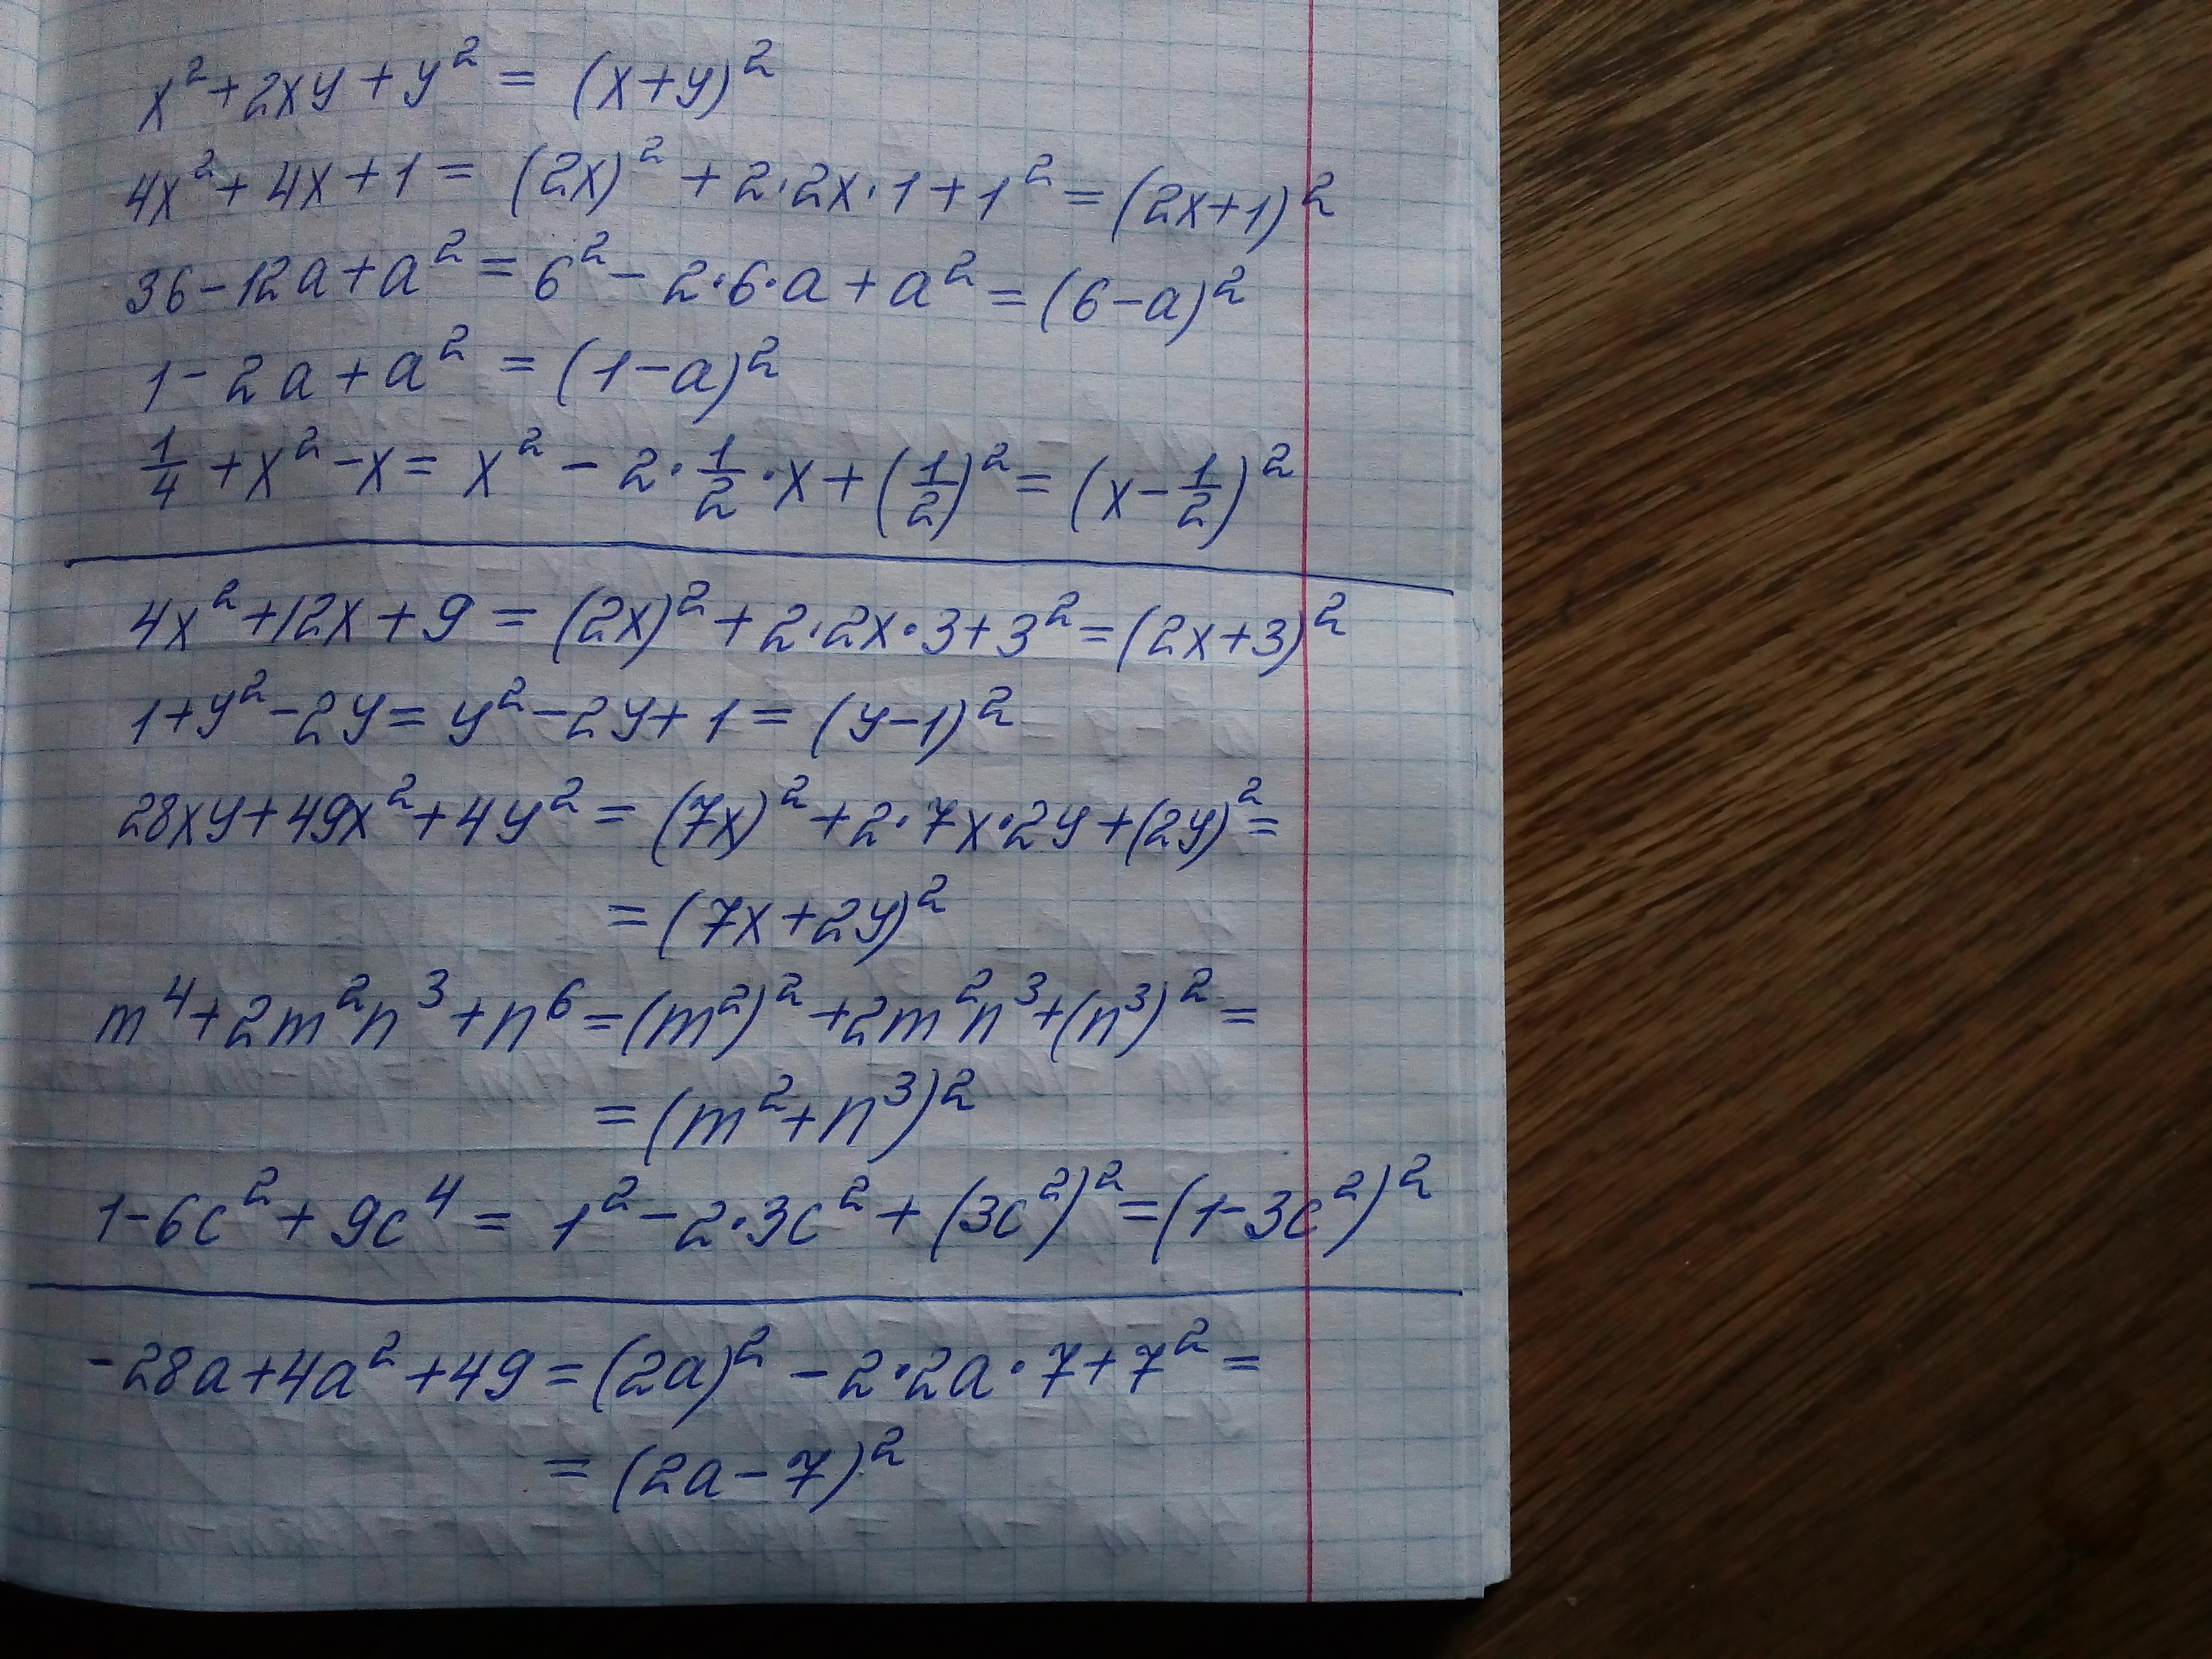 x² + 2xy + y² = (x+y)²
4x² + 4x + 1 = (2x)² + 2·2x·1 + 1² = (2x+1)²
36 - 12a + a² = 6² - 2·6·a + a² = (6-a)²
1 - 2a + a² = (1-a)²
1/4 + x² - x = x² - 2·1/2·x + (1/2)² = (x - 1/2)²
4x² + 12x + 9 = (2x)² + 2·2x·3 + 3² = (2x+3)²
1 + y² - 2y = y² - 2y + 1 = (y-1)²
28xy + 49x² + 4y² = (7x)² + 2·7x·2y + (2y)² =
= (7x+2y)²
m⁴ + 2m²n³ + n⁶ = (m²)² + 2m²n³ + (n³)² =
= (m²+n³)²
1 - 6c² + 9c⁴ = 1² - 2·3c² + (3c²)² = (1-3c²)²
-28a + 4a² + 49 = (2a)² - 2·2a·7 + 7² =
= (2a-7)²